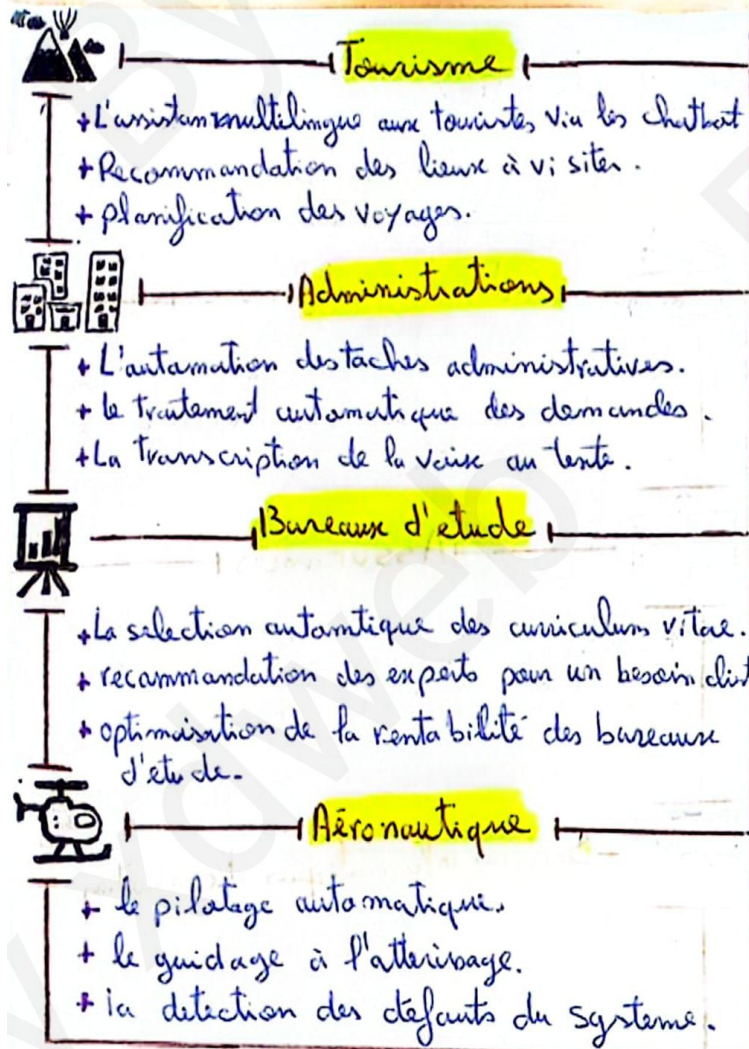 Tourisme
+ L'assistan multilingue aux touristes via les chatbot
+ Recommandation des lieux à visiter.
+ planification des voyages.
Administrations
+ L'automation des taches administratives.
+ le traitement automatique des demandes.
+ La transcription de la voix au texte.
Bureaux d'etude
+ La selection automtique des curriculum vitae.
+ recommandation des experts pour un besoin
+ optimisation de la rentabilité des bureaux
d'etude.
Aéronautique
+ le pilotage automatique.
+ le guidage à l'atterissage.
+ la detection des défauts du systeme.
xdweb
By